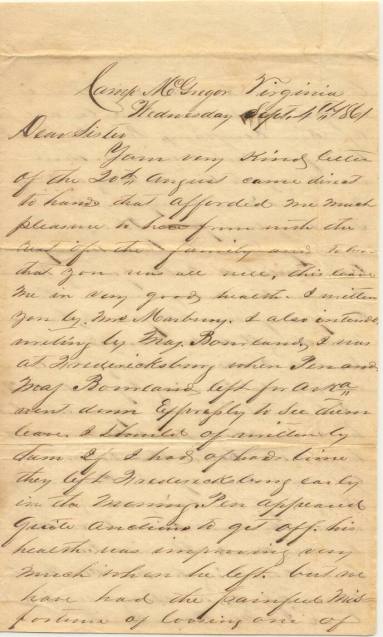 Camp McGregor Virginia
Wednesday Sept. 4th 1861
Dear Sister
Your very Kind letter
of the 20th August came direct
to hand that afforded me much
pleasure to hear from with the
rest of the family and
that you was all well, this leave
me in very good health. I written
you by Mr. Marbury. I also intended
writing by Maj. I was
at Fredericksburg when Pen and
Maj left for Arka
went down Expressly to see them
leave. I Should of written by
tham If I had of had time
they left Fredericksburg early
in the Morning. Pen appeared
quite anctious to get off. his
health was improving very
much when he left. but we
have had the painful Mis-
fortune of loosing one of